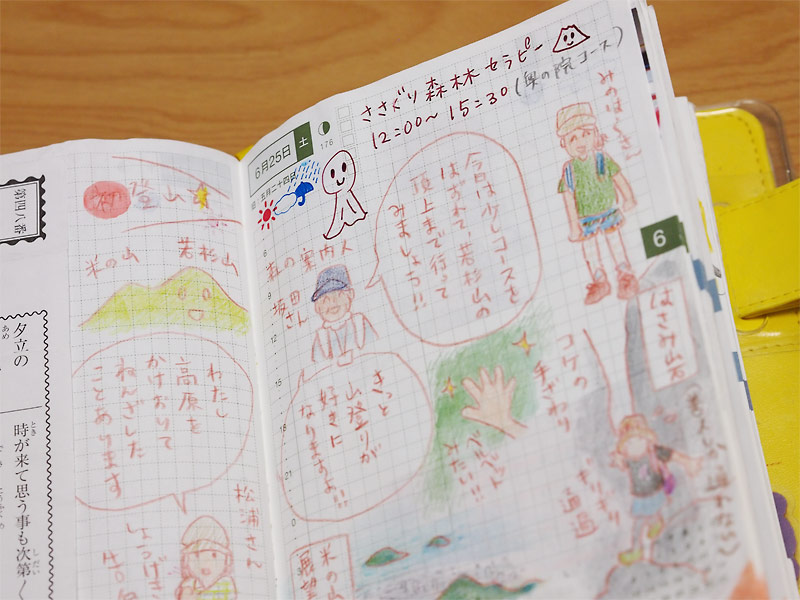 ささぐり 森林 セラピー
12:00〜15:30
(奥の院コース)
6月25日
土
176
五月二十四日
みのはらさん
今日は少しコースを
はずれて、若杉山の
頂上まで行って
みましょう!!
森の案内人
さん
きっと
山登りが
好きに
なりますよ!!
コケの
手ざわり
ベルベット
みたい!!
6
はさみ岩
ギリギリ
通過
米の山
展望
6
9
12
15
18
21
0
登山
若杉山
米の山
わたし
高原を
かけおりて
ねんざした
ことあります
松浦さん
しょうげき
第四八番
夕立の
あめ
時が来て思う事も次第く
とき
しだい